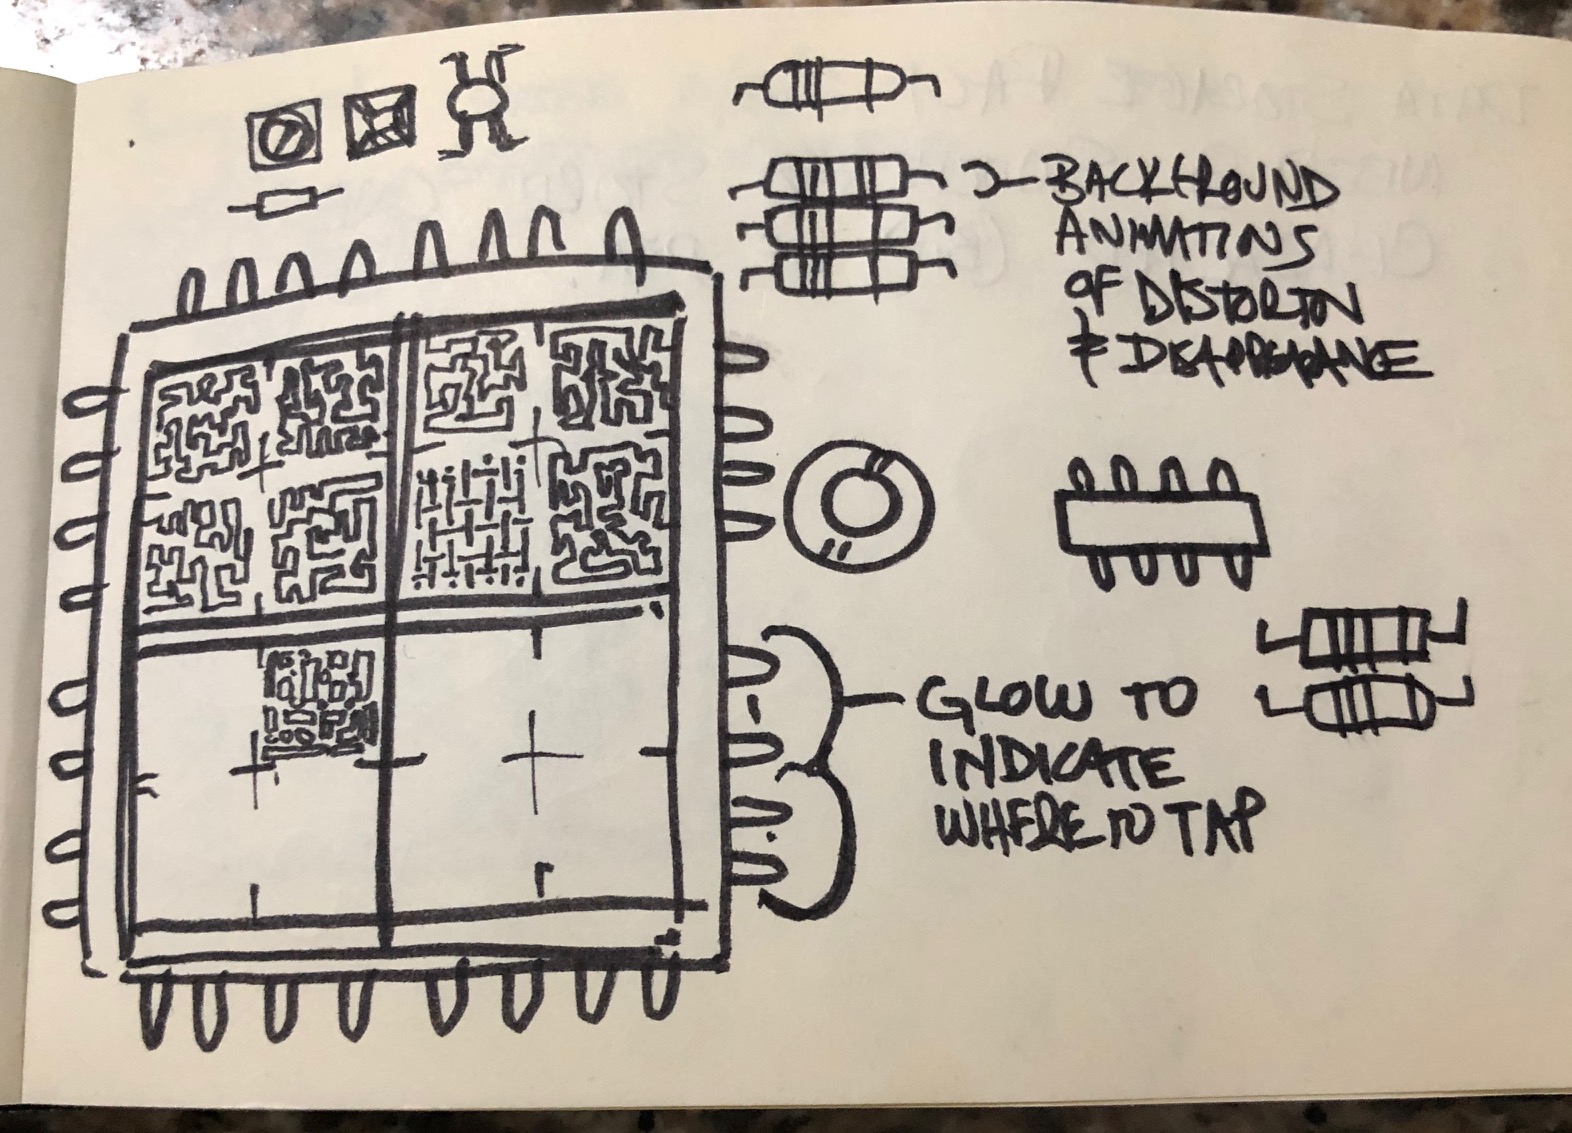 BACKGROUND
ANIMATINS
OF DISTORTN
& DISAPPEARANCE
GLOW TO
INDICATE
WHERE TO TAP